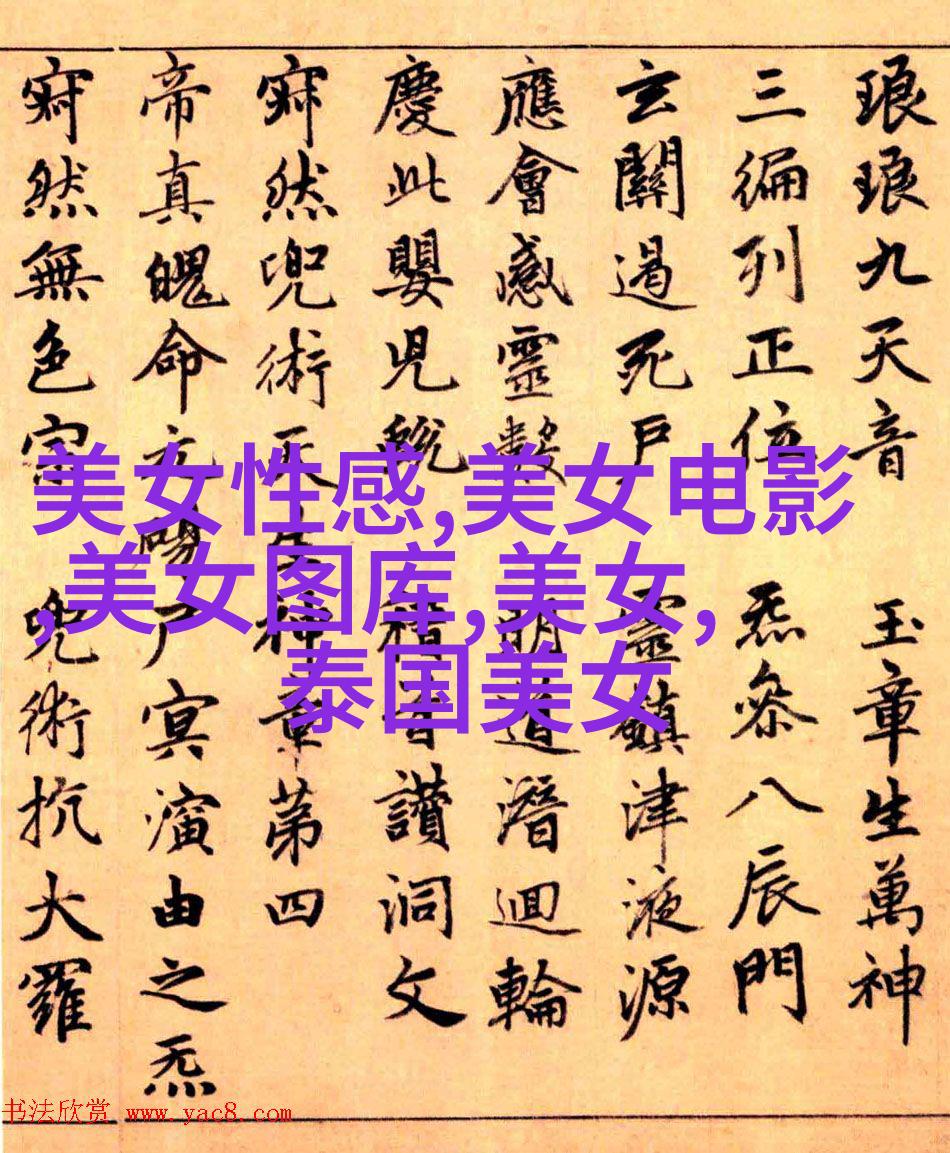 琅琅九天音 玉章生萬神
三徧列正位 炁參八辰門
玄關過死戶 靈鎮津液源
應會感靈數 明道潛迴輪
慶此嬰兒蛻 稽首讚洞文
寂然兜術天王神章第四
帝真魄命元陽尸冥演由之炁
寂然無色宗 兜術抗大羅
美女性感,美女电影
,美女图库,美女,
泰国美女
书法欣赏 www.yac8.com